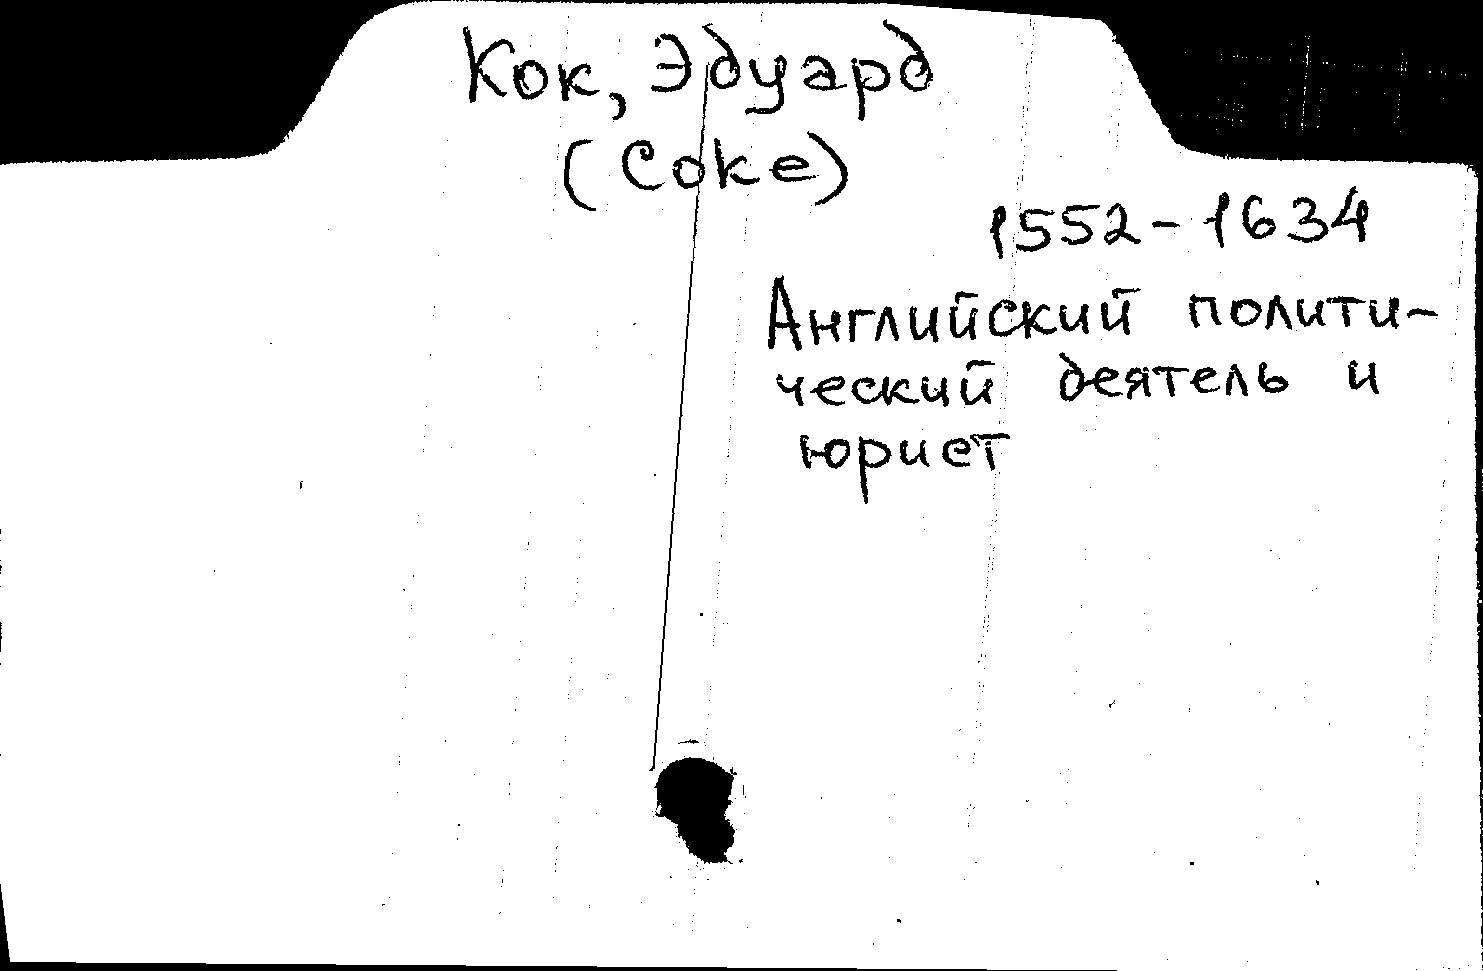 Кок, Эдуард
(Coke)
1552-1634
Английский полити-
ческий деятель и
юрист